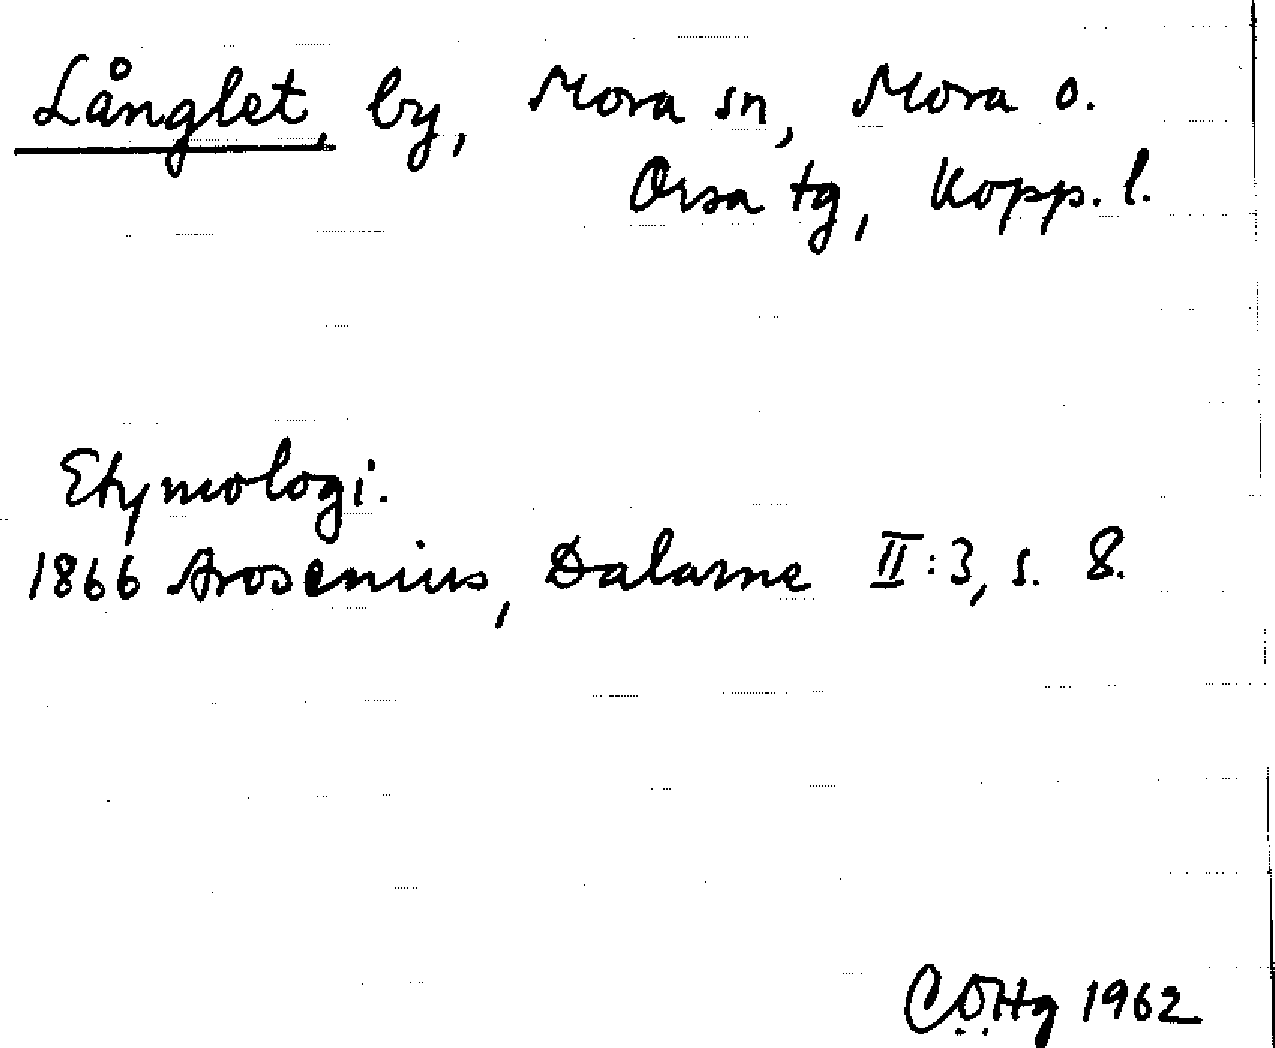 Långlet, by, Mora sn, Mora o.
Orsa tg, Kopp. l.
Etymologi.
1866 Arosenius, Dalarne II:3, s. 8.
1962